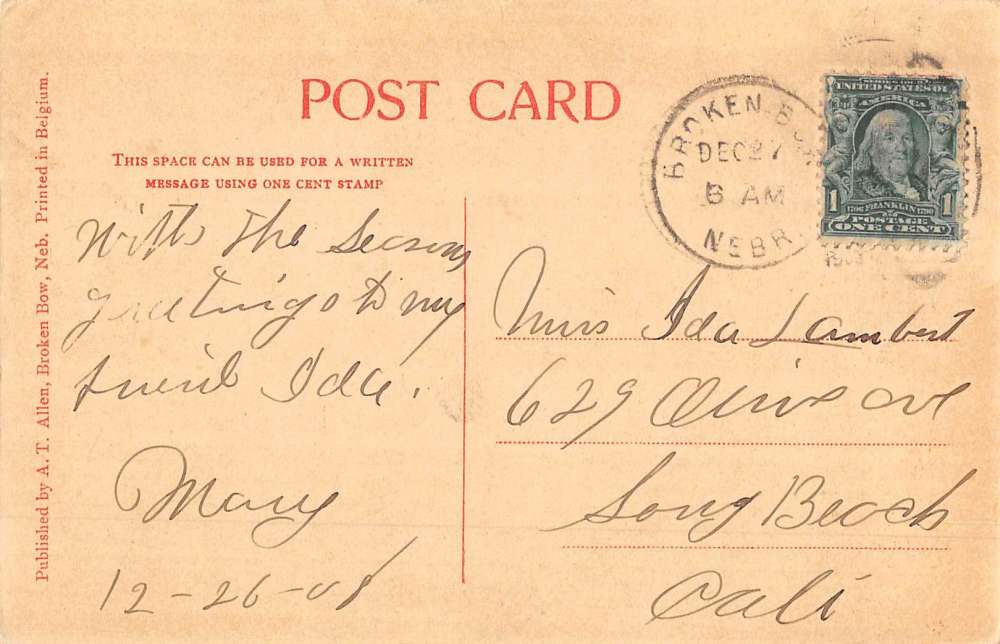 POST CARD
THIS SPACE CAN BE USED FOR A WRITTEN
MESSAGE USING ONE CENT STAMP
With the Seasons
greetings to my
friend Ida.
Mary
12-26-08
Published by A. T. Allen, Broken Bow, Neb. Printed in Belgium.
BROKEN BOW
DEC 27
6 AM
NEBR
UNITED STATES OF
AMERICA
1 FRANKLIN 1
POSTAGE
ONE CENT
Miss Ida Lambert
629 Olive ave
Long Beach
Cali